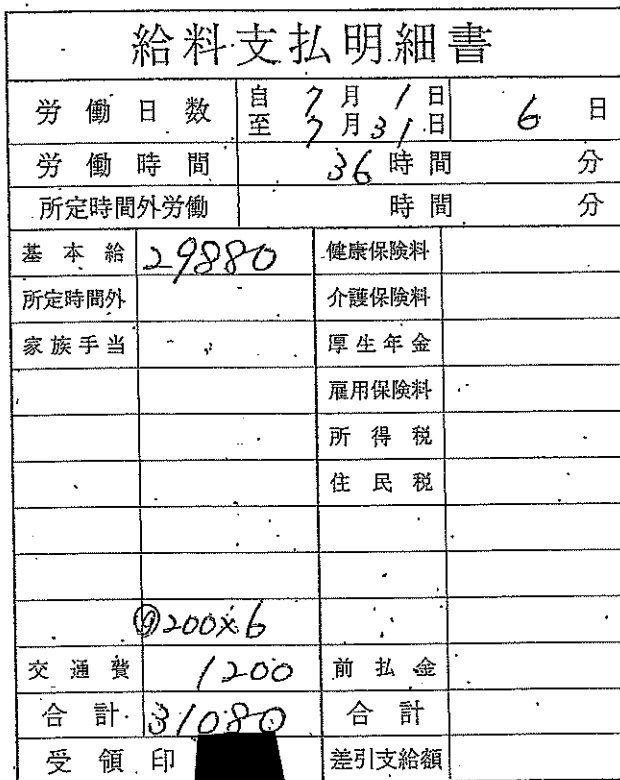 給料支払明細書
労働日数 自 7月1日 6日
至 7月31日
労働時間 36時間 分
所定時間外労働 時間 分
基本給 29880 健康保険料
所定時間外 介護保険料
家族手当 厚生年金
雇用保険料
所得税
住民税
@200×6
交通費 1200 前払金
合計 31080 合計
受領印 差引支給額